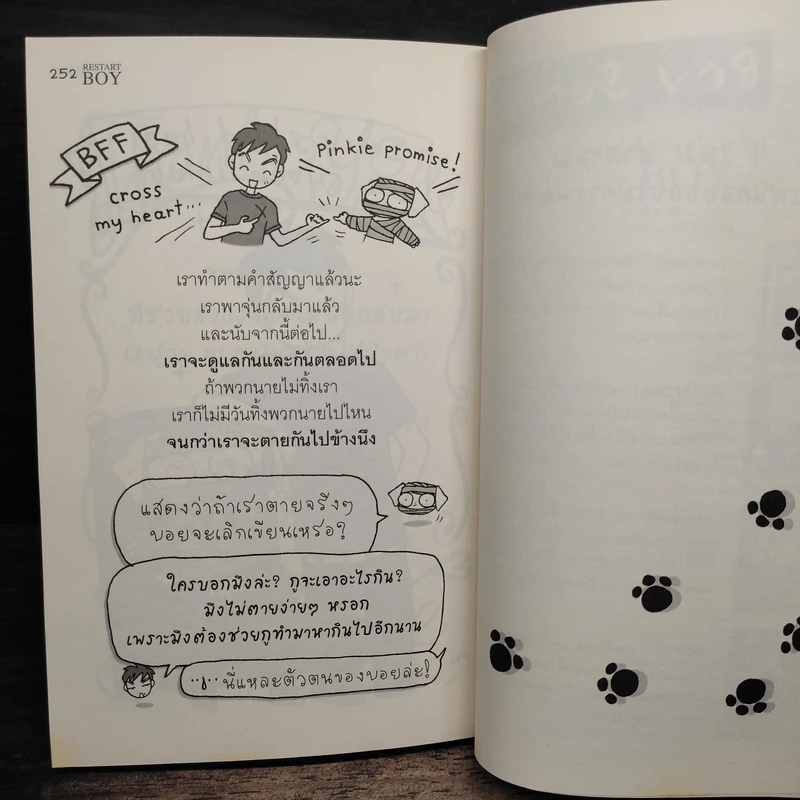 252 RESTART
BOY
BFF
cross
my heart...
Pinkie promise!
เราทำตามคำสัญญาแล้วนะ
เราพาจุ่นกลับมาแล้ว
และนับจากนี้ต่อไป...
เราจะดูแลกันและกันตลอดไป
ถ้าพวกนายไม่ทิ้งเรา
เราก็ไม่มีวันทิ้งพวกนายไปไหน
จนกว่าเราจะตายกันไปข้างนึง
แสดงว่าถ้าเราตายจริงๆ
บอยจะเลิกเขียนเหรอ?
ใครบอกมึงล่ะ? กูจะเอาอะไรกิน?
มึงไม่ตายง่ายๆ หรอก
เพราะมึงต้องช่วยกูทำมาหากินไปอีกนาน
นี่แหละตัวตนของบอยล่ะ!